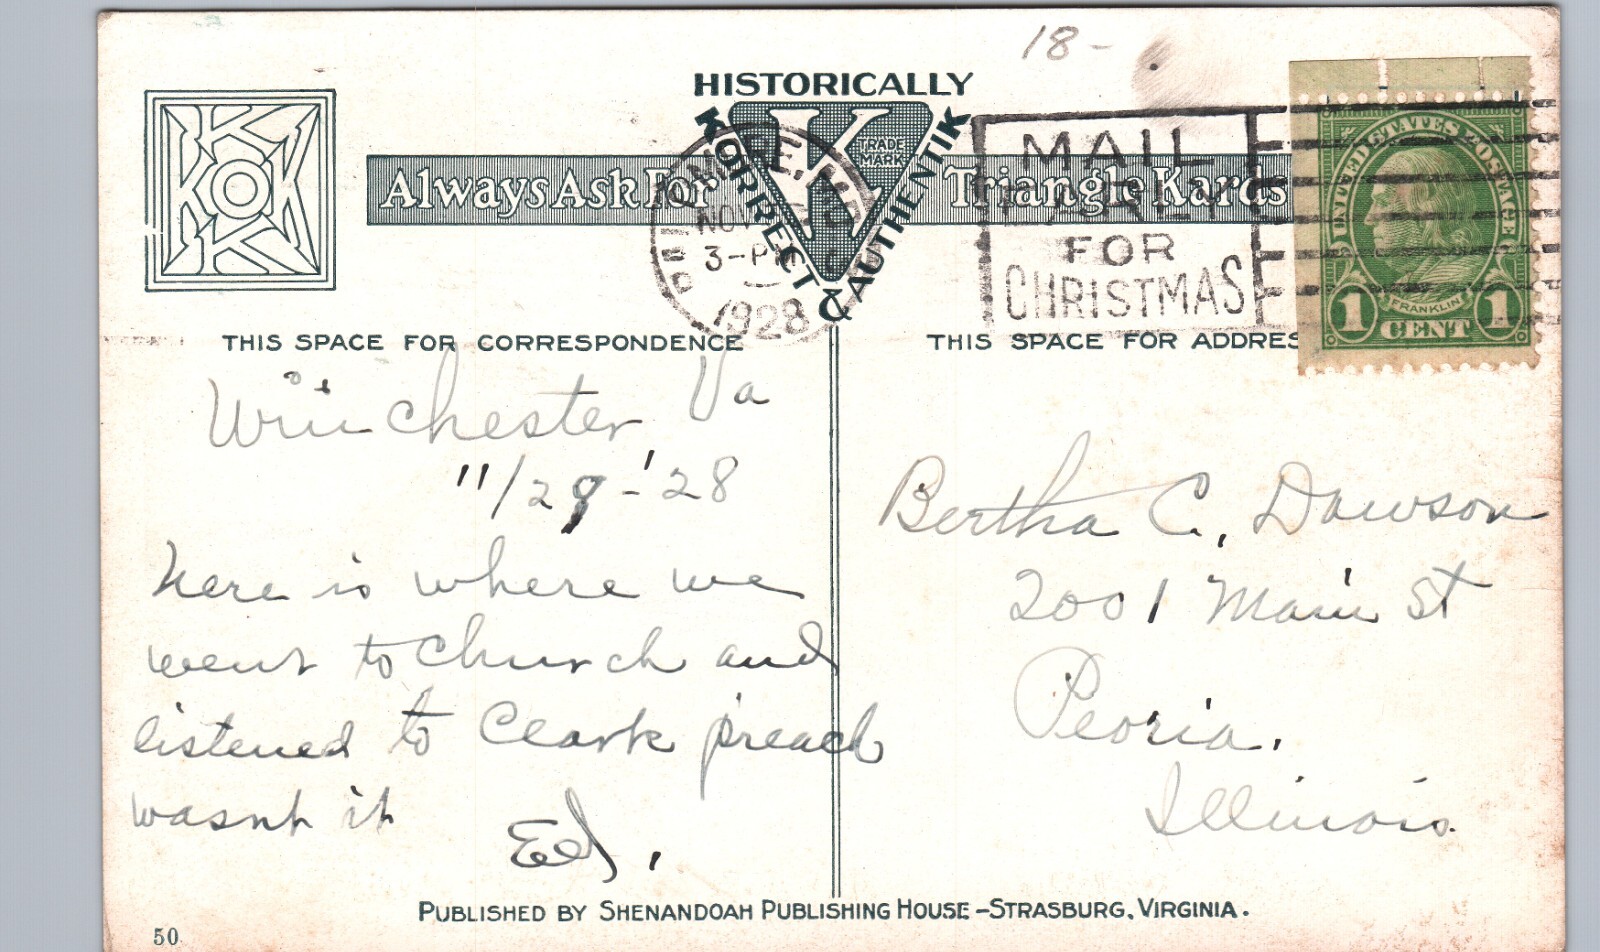 18-
HISTORICALLY
KORRECT & AUTHENTIK
K
TRADE
MARK
KKKK
Always Ask For Triangle Kards
MAIL
EARLY
FOR
CHRISTMAS
NOV
3-PM
1928
UNITED STATES POSTAGE
FRANKLIN
1 CENT 1
THIS SPACE FOR CORRESPONDENCE
THIS SPACE FOR ADDRES
Winchester, Va
11/29-'28
Here is where we
went to church and
listened to Clark preach
wasnt it
Ed.
Bertha C. Dawson
2001 Main St
Peoria.
Illinois.
PUBLISHED BY SHENANDOAH PUBLISHING HOUSE-STRASBURG, VIRGINIA.
50